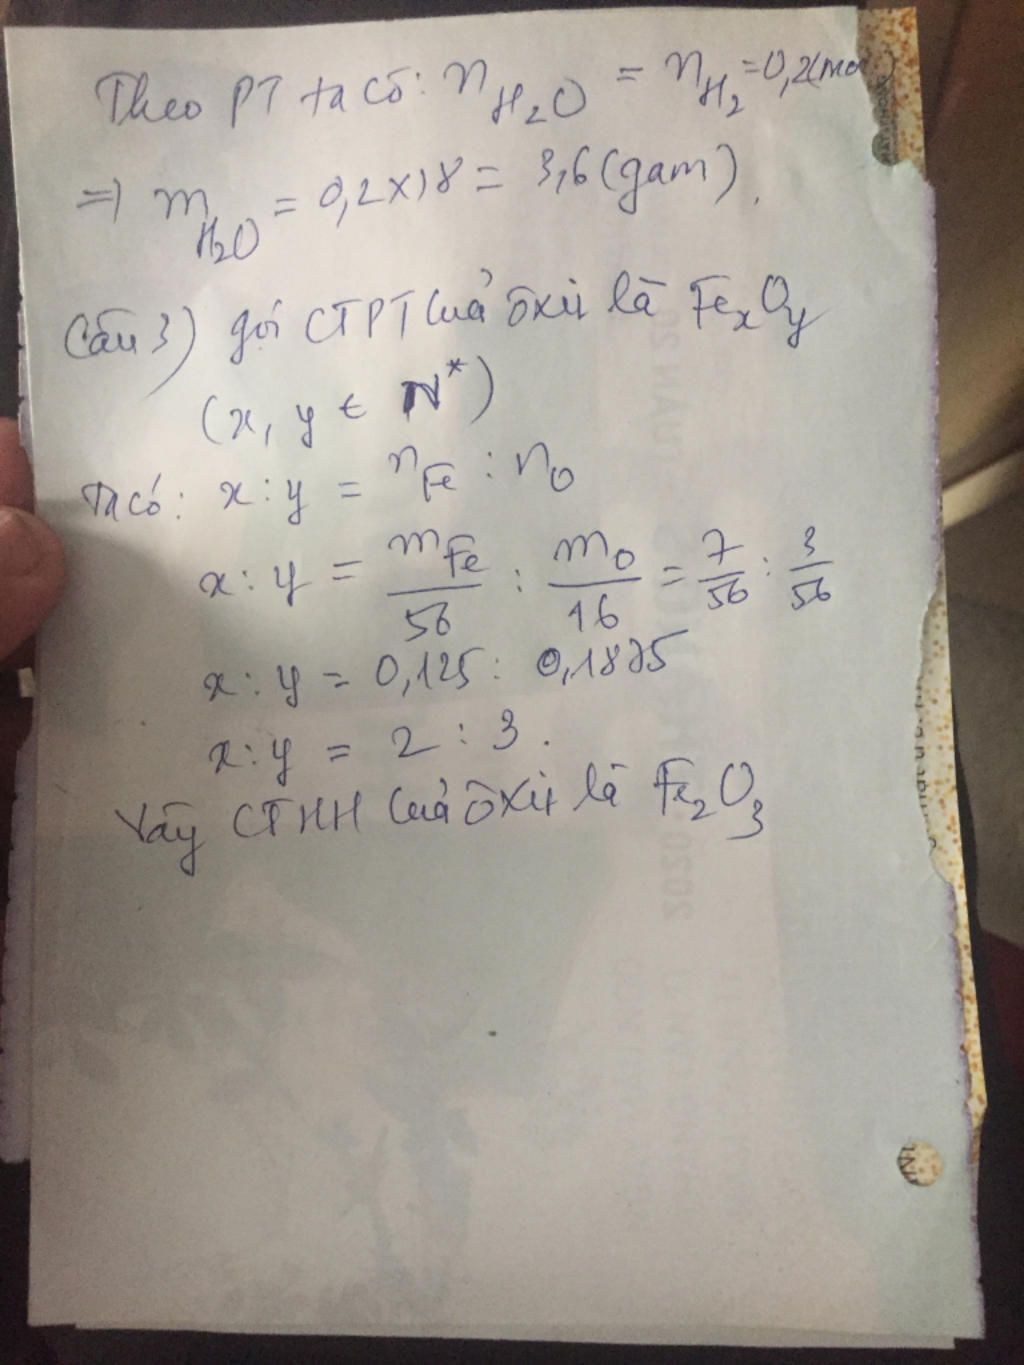 Theo PT ta có: n_{H_2O} = n_{H_2} = 0,2(mol)
=> m_{H_2O} = 0,2 x 18 = 3,6 (gam).
Câu 3) gọi CTPT của ôxit là Fe_xO_y
(x, y ∈ N*)
Ta có: x : y = n_{Fe} : n_O
x : y = m_{Fe}/56 : m_O/16 = 7/56 : 3/56
x : y = 0,125 : 0,1875
x : y = 2 : 3.
Vậy CTHH của ôxit là Fe_2O_3